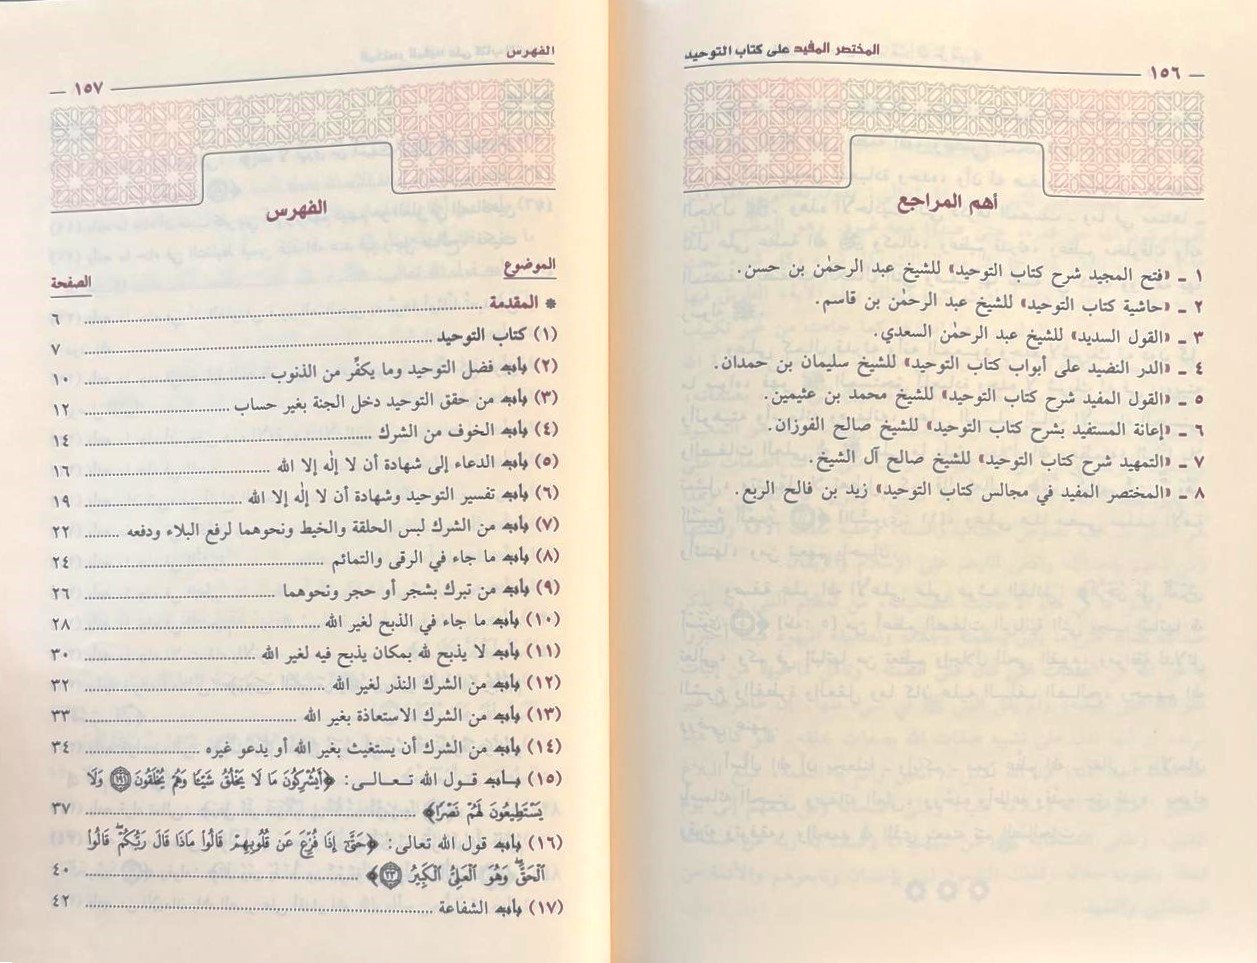 المختصر المفيد على كتاب التوحيد
١٥٦
أهم المراجع
١ ـ «فتح المجيد شرح كتاب التوحيد» للشيخ عبد الرحمٰن بن حسن.
٢ ـ «حاشية كتاب التوحيد» للشيخ عبد الرحمٰن بن قاسم.
٣ ـ «القول السديد» للشيخ عبد الرحمٰن السعدي.
٤ ـ «الدر النضيد على أبواب كتاب التوحيد» للشيخ سليمان بن حمدان.
٥ ـ «القول المفيد شرح كتاب التوحيد» للشيخ محمد بن عثيمين.
٦ ـ «إعانة المستفيد بشرح كتاب التوحيد» للشيخ صالح الفوزان.
٧ ـ «التمهيد شرح كتاب التوحيد» للشيخ صالح آل الشيخ.
٨ ـ «المختصر المفيد في مجالس كتاب التوحيد» زيد بن فالح الربع.
الفهرس
١٥٧
الفهرس
الموضوع الصفحة
* المقدمة ٦
(١) كتاب التوحيد ٧
(٢) باب فضل التوحيد وما يكفّر من الذنوب ١٠
(٣) باب من حقق التوحيد دخل الجنة بغير حساب ١٢
(٤) باب الخوف من الشرك ١٤
(٥) باب الدعاء إلى شهادة أن لا إلٰه إلا الله ١٦
(٦) باب تفسير التوحيد وشهادة أن لا إلٰه إلا الله ١٩
(٧) باب من الشرك لبس الحلقة والخيط ونحوهما لرفع البلاء ودفعه ٢٢
(٨) باب ما جاء في الرقى والتمائم ٢٤
(٩) باب من تبرك بشجر أو حجر ونحوهما ٢٦
(١٠) باب ما جاء في الذبح لغير الله ٢٨
(١١) باب لا يذبح لله بمكان يذبح فيه لغير الله ٣٠
(١٢) باب من الشرك النذر لغير الله ٣٢
(١٣) باب من الشرك الاستعاذة بغير الله ٣٣
(١٤) باب من الشرك أن يستغيث بغير الله أو يدعو غيره ٣٤
(١٥) باب قول الله تعالى: ﴿أَيُشْرِكُونَ مَا لَا يَخْلُقُ شَيْئًا وَهُمْ يُخْلَقُونَ ١٩١ وَلَا
يَسْتَطِيعُونَ لَهُمْ نَصْرًا﴾ ٣٧
(١٦) باب قول الله تعالى: ﴿حَتَّىٰ إِذَا فُزِّعَ عَن قُلُوبِهِمْ قَالُوا مَاذَا قَالَ رَبُّكُمْ قَالُوا
الْحَقَّ وَهُوَ الْعَلِيُّ الْكَبِيرُ ٢٣﴾ ٤٠
(١٧) باب الشفاعة ٤٢